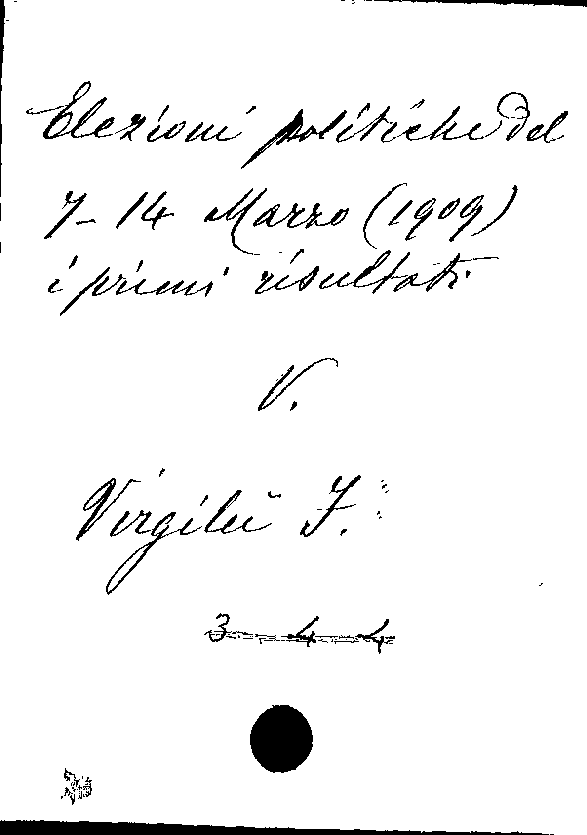 Elezioni politiche del
7-14 Marzo (1909)
i primi risultati
V.
Virgilii F.
3 4 4